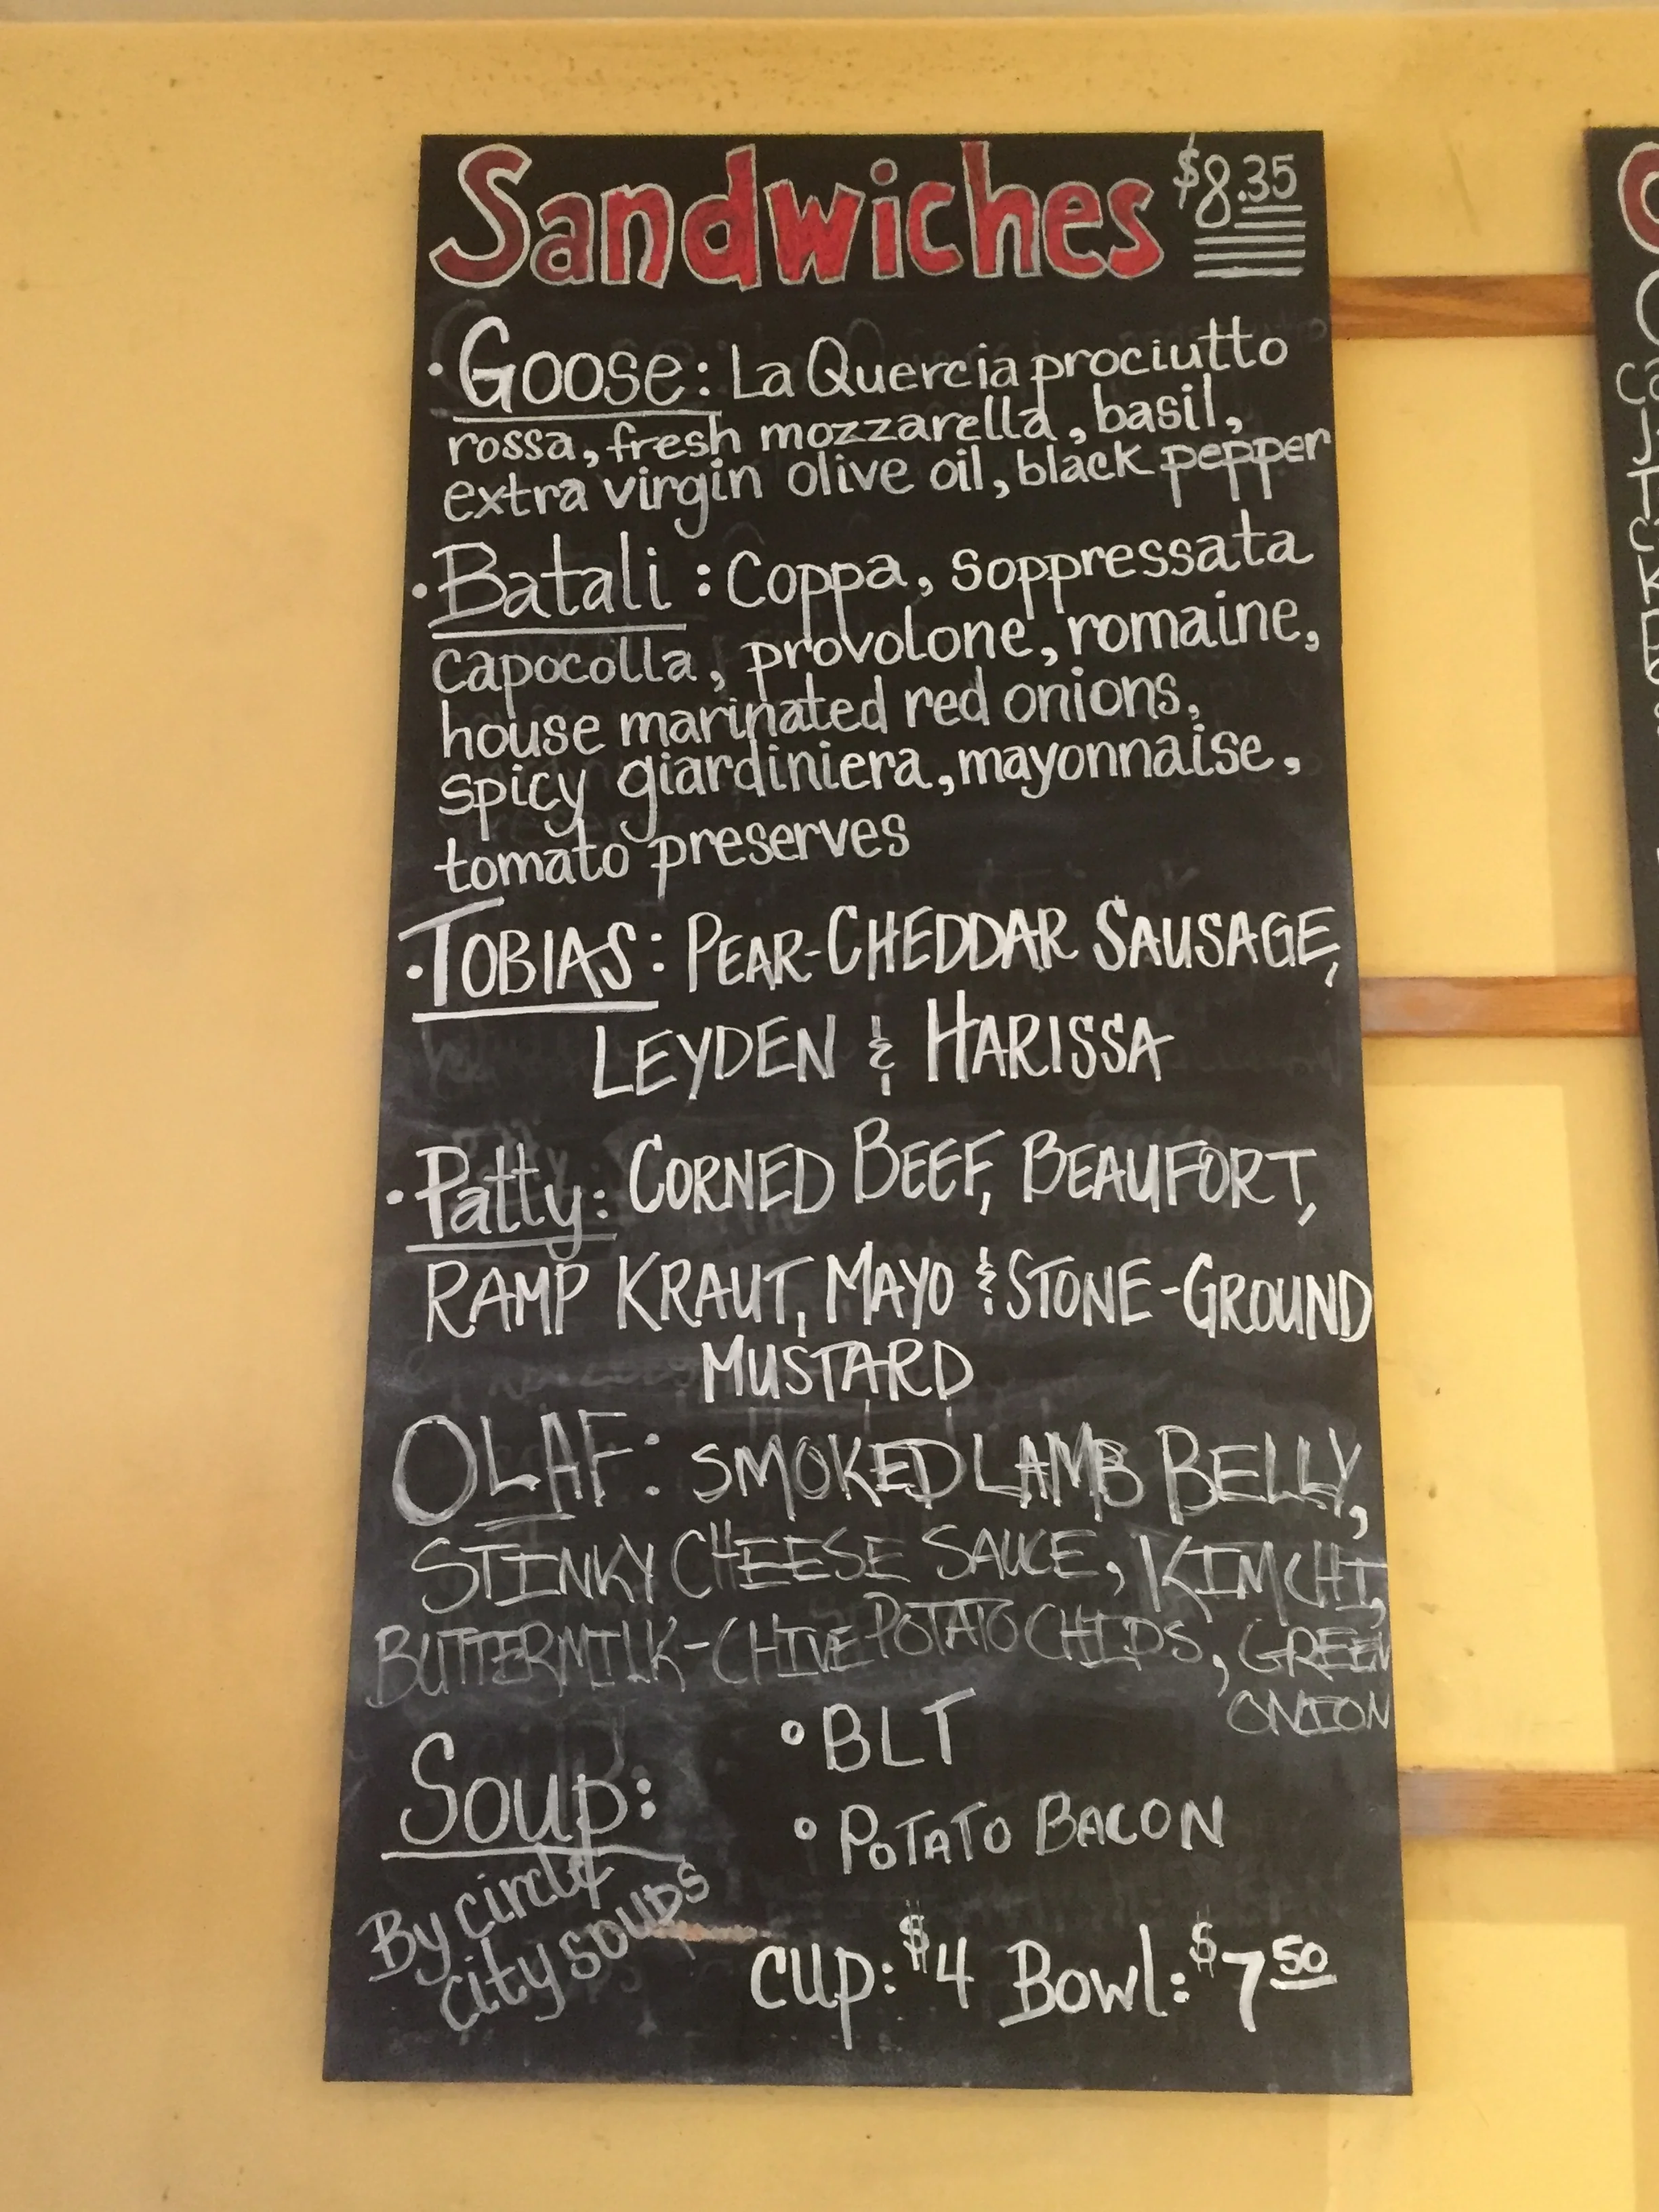 Sandwiches $8.35
• Goose: La Quercia prociutto
rossa, fresh mozzarella, basil,
extra virgin olive oil, black pepper
• Batali: Coppa, Soppressata
capocolla, provolone, romaine,
house marinated red onions,
spicy giardiniera, mayonnaise,
tomato preserves
• TOBIAS: PEAR-CHEDDAR SAUSAGE,
LEYDEN & HARISSA
• Patty: CORNED BEEF, BEAUFORT,
RAMP KRAUT, MAYO & STONE-GROUND
MUSTARD
OLAF: SMOKED LAMB BELLY,
STINKY CHEESE SAUCE, KIMCHI,
BUTTERMILK-CHIVE POTATO CHIPS, GREEN
ONION
Soup:
By circle
city soups
• BLT
• POTATO BACON
cup: $4 Bowl: $7 50